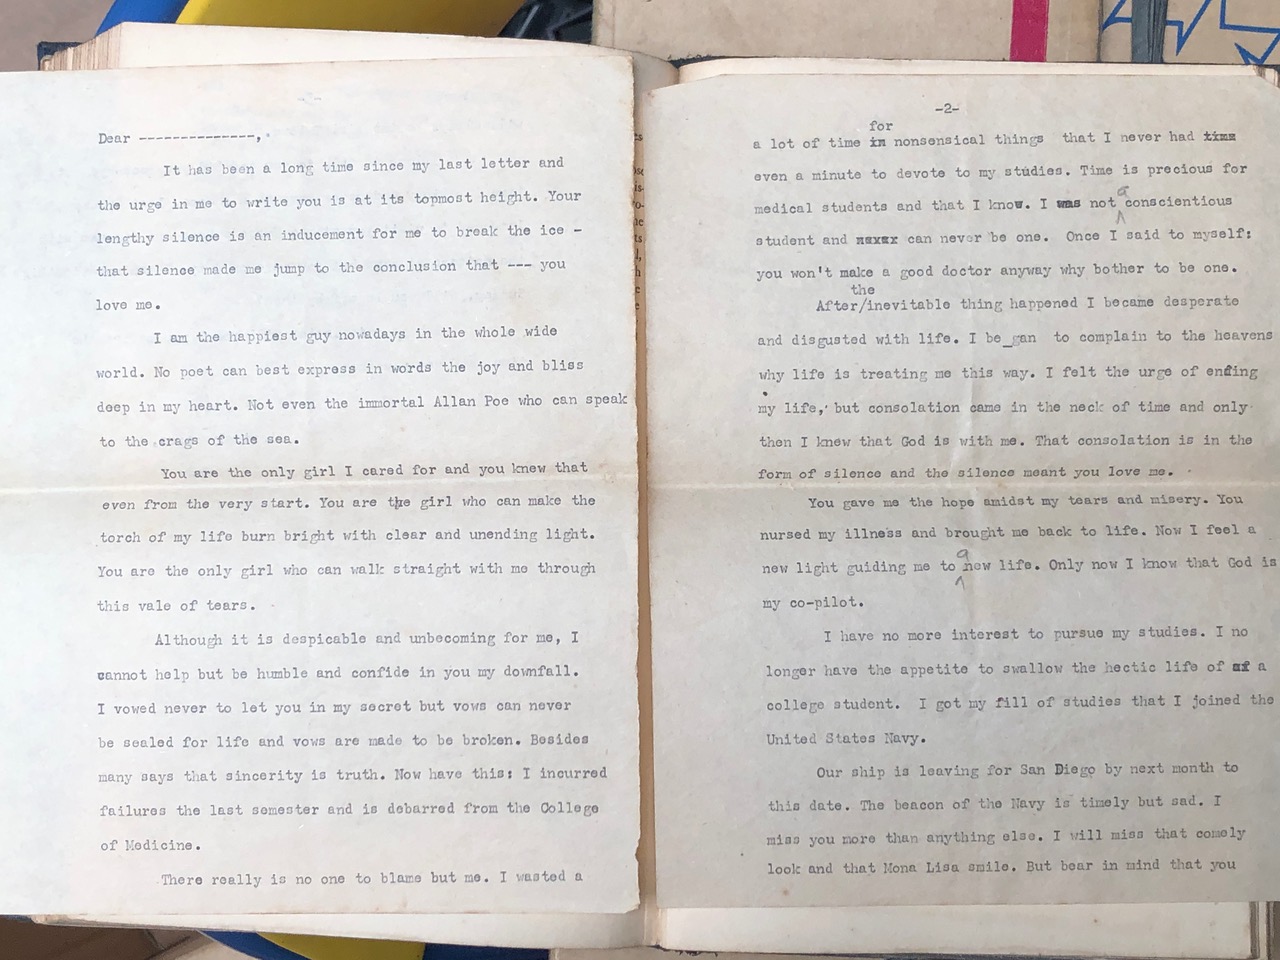 Dear --------------,
It has been a long time since my last letter and
the urge in me to write you is at its topmost height. Your
lengthy silence is an inducement for me to break the ice -
that silence made me jump to the conclusion that --- you
love me.
I am the happiest guy nowadays in the whole wide
world. No poet can best express in words the joy and bliss
deep in my heart. Not even the immortal Allan Poe who can speak
to the crags of the sea.
You are the only girl I cared for and you knew that
even from the very start. You are the girl who can make the
torch of my life burn bright with clear and unending light.
You are the only girl who can walk straight with me through
this vale of tears.
Although it is despicable and unbecoming for me, I
cannot help but be humble and confide in you my downfall.
I vowed never to let you in my secret but vows can never
be sealed for life and vows are made to be broken. Besides
many says that sincerity is truth. Now have this: I incurred
failures the last semester and is debarred from the College
of Medicine.
There really is no one to blame but me. I wasted a
-2-
for
a lot of time in nonsensical things that I never had time
even a minute to devote to my studies. Time is precious for
a
medical students and that I know. I was not conscientious
student and can never be one. Once I said to myself:
you won't make a good doctor anyway why bother to be one.
the
After/inevitable thing happened I became desperate
and disgusted with life. I be_gan to complain to the heavens
why life is treating me this way. I felt the urge of ending
my life, but consolation came in the neck of time and only
then I knew that God is with me. That consolation is in the
form of silence and the silence meant you love me.
You gave me the hope amidst my tears and misery. You
nursed my illness and brought me back to life. Now I feel a
a
new light guiding me to new life. Only now I know that God is
my co-pilot.
I have no more interest to pursue my studies. I no
longer have the appetite to swallow the hectic life of a
college student. I got my fill of studies that I joined the
United States Navy.
Our ship is leaving for San Diego by next month to
this date. The beacon of the Navy is timely but sad. I
miss you more than anything else. I will miss that comely
look and that Mona Lisa smile. But bear in mind that you